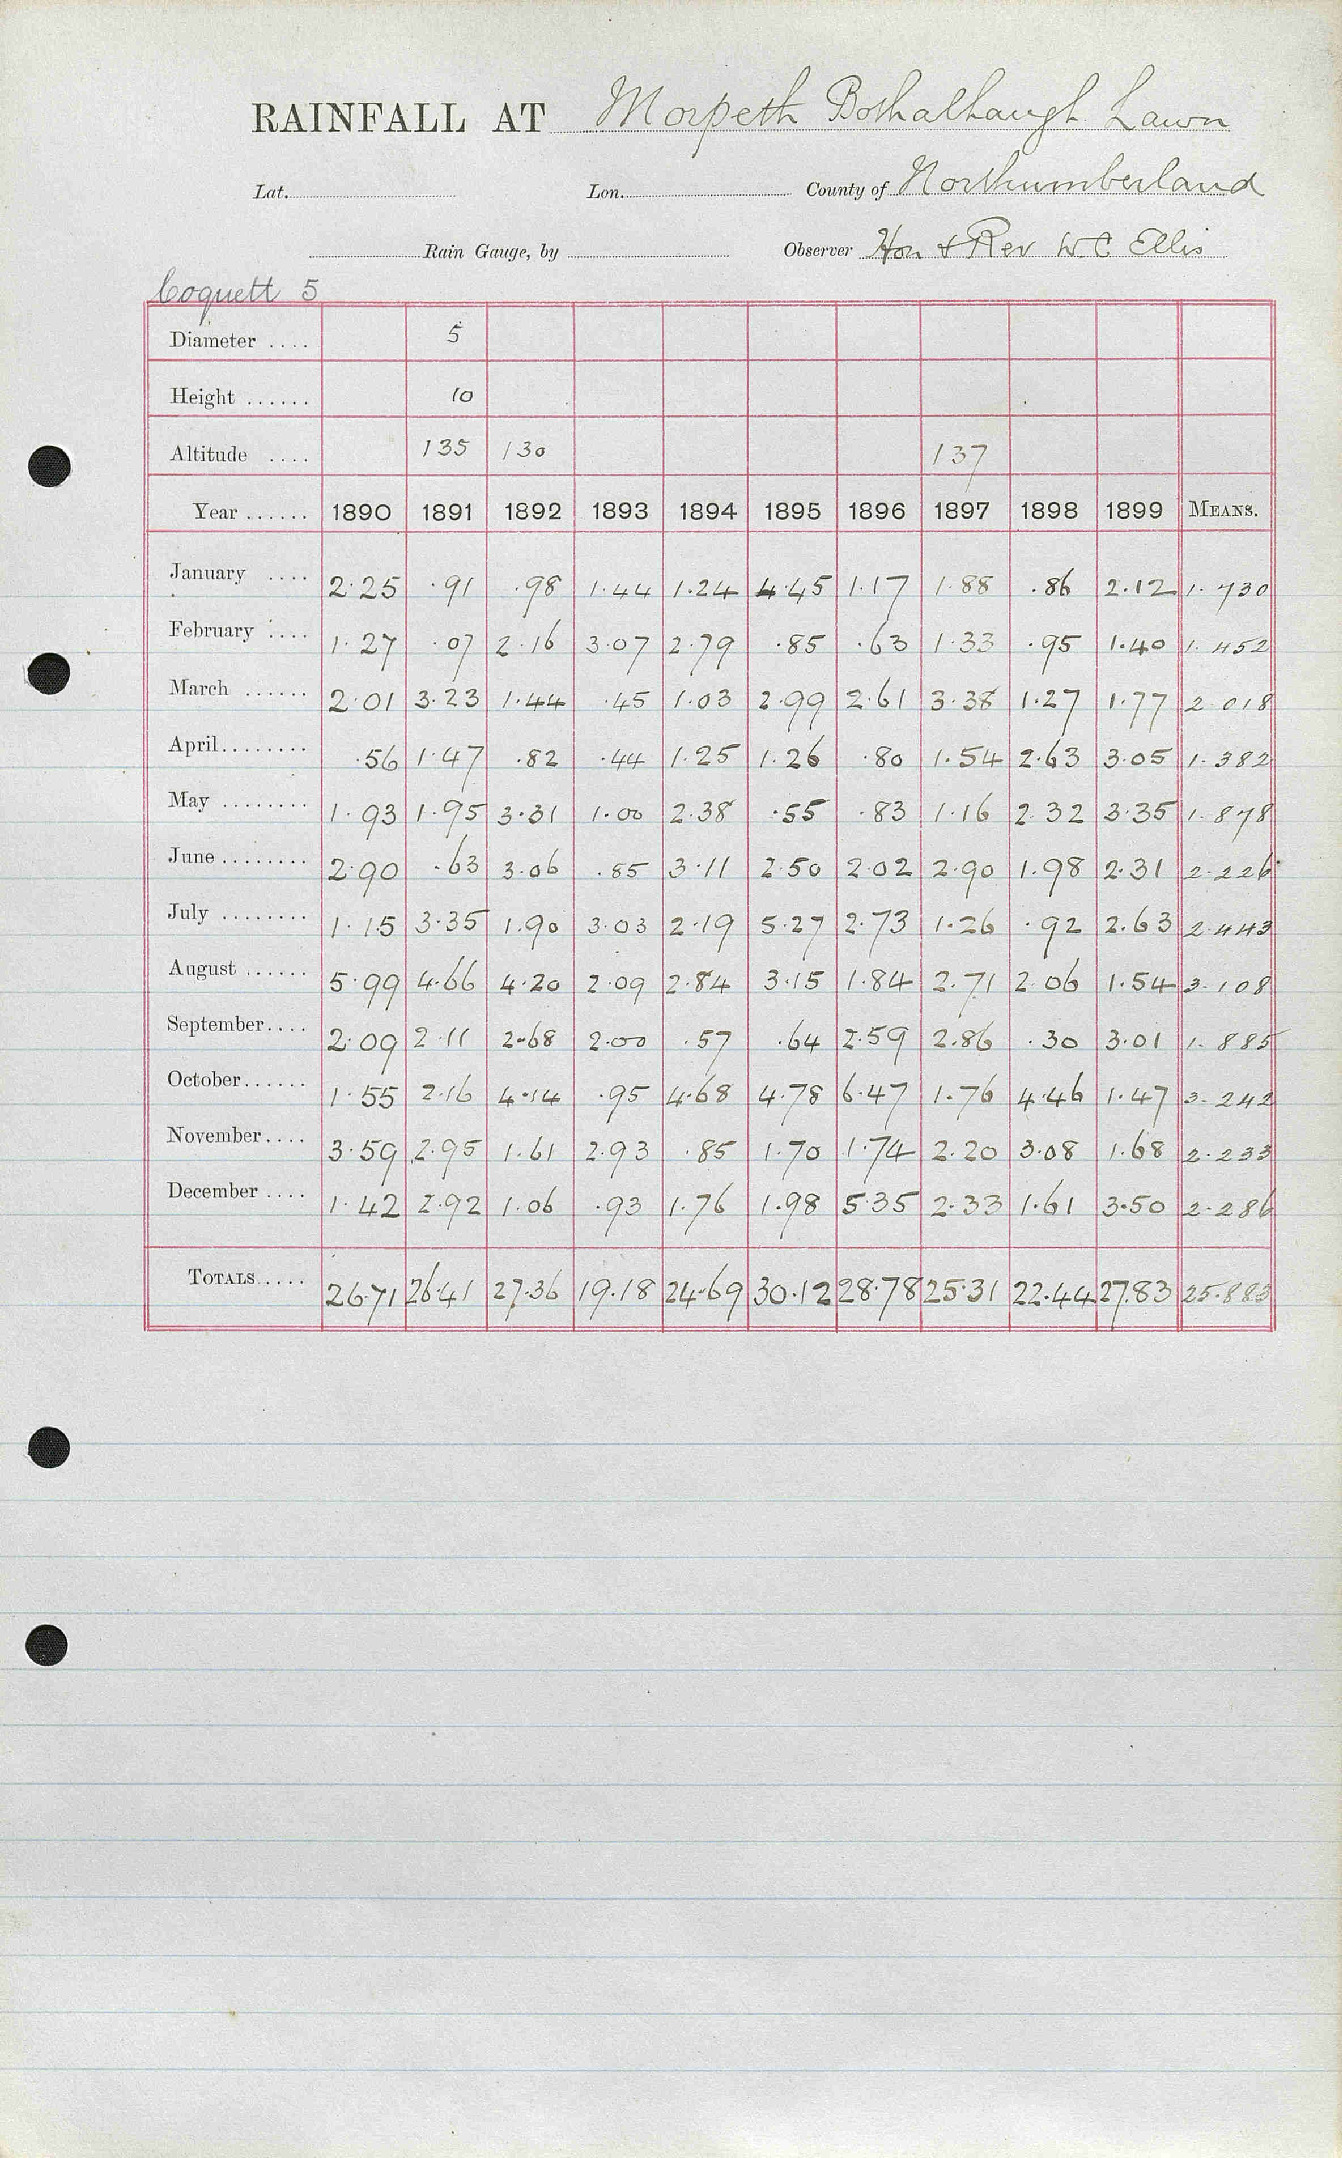 RAINFALL AT Morpeth Bothalhaugh Lawn
Lat. Lon. County of Northumberland
Rain Gauge, by Observer Hon & Rev W.C Ellis
Coquett 5
Diameter .... 5
Height ...... 10
Altitude .... 135 130 137
Year ...... 1890 1891 1892 1893 1894 1895 1896 1897 1898 1899 MEANS.
January .... 2.25 .91 .98 1.44 1.24 4.45 1.17 1.88 .86 2.12 1.730
February .... 1.27 .07 2.16 3.07 2.79 .85 .63 1.33 .95 1.40 1.452
March ...... 2.01 3.23 1.44 .45 1.03 2.99 2.61 3.38 1.27 1.77 2.018
April........ .56 1.47 .82 .44 1.25 1.26 .80 1.54 2.63 3.05 1.382
May ........ 1.93 1.95 3.31 1.00 2.38 .55 .83 1.16 2.32 3.35 1.878
June ........ 2.90 .63 3.06 .85 3.11 2.50 2.02 2.90 1.98 2.31 2.226
July ........ 1.15 3.35 1.90 3.03 2.19 5.27 2.73 1.26 .92 2.63 2.443
August ...... 5.99 4.66 4.20 2.09 2.84 3.15 1.84 2.71 2.06 1.54 3.108
September.... 2.09 2.11 2.68 2.00 .57 .64 2.59 2.86 .30 3.01 1.885
October...... 1.55 2.16 4.14 .95 4.68 4.78 6.47 1.76 4.46 1.47 3.242
November.... 3.59 2.95 1.61 2.93 .85 1.70 1.74 2.20 3.08 1.68 2.233
December .... 1.42 2.92 1.06 .93 1.76 1.98 5.35 2.33 1.61 3.50 2.286
TOTALS..... 26.71 26.41 27.36 19.18 24.69 30.12 28.78 25.31 22.44 27.83 25.883